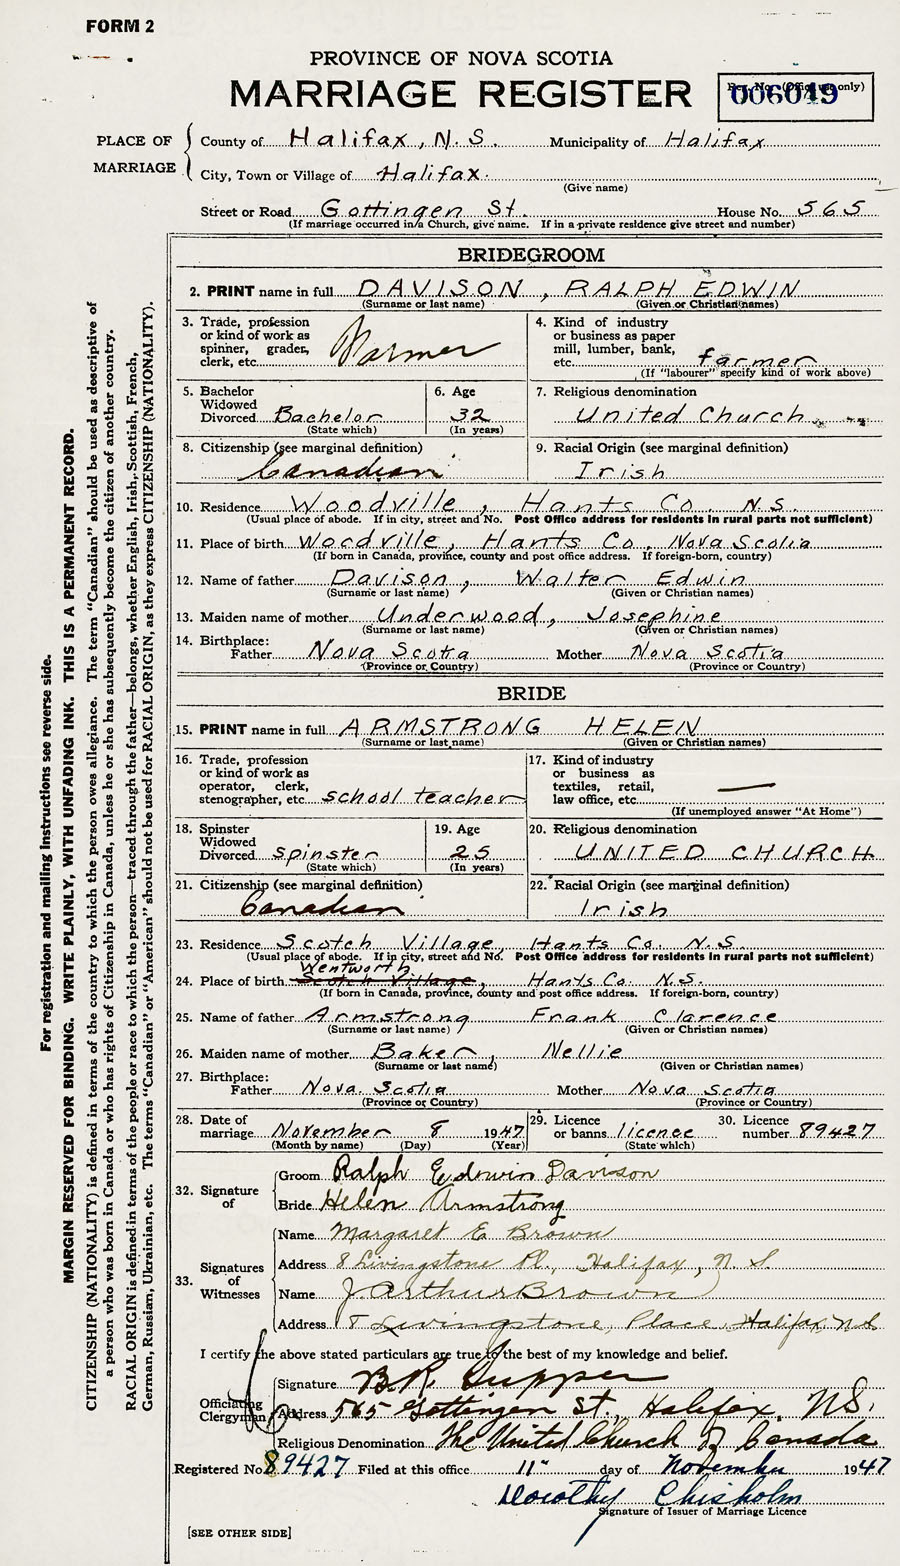 FORM 2
PROVINCE OF NOVA SCOTIA
MARRIAGE REGISTER
Reg. No. (Office use only)
006049
PLACE OF MARRIAGE
County of Halifax, N.S. Municipality of Halifax
City, Town or Village of Halifax.
(Give name)
Street or Road Gottingen St. House No. 565
(If marriage occurred in a Church, give name. If in a private residence give street and number)
BRIDEGROOM
2. PRINT name in full DAVISON, RALPH EDWIN
(Surname or last name) (Given or Christian names)
3. Trade, profession or kind of work as spinner, grader, clerk, etc. Farmer
4. Kind of industry or business as paper mill, lumber, bank, etc. farmer
(If "labourer" specify kind of work above)
5. Bachelor Widowed Divorced Bachelor
(State which)
6. Age 32
(In years)
7. Religious denomination United Church
8. Citizenship (see marginal definition) Canadian
9. Racial Origin (see marginal definition) Irish
10. Residence Woodville, Hants Co. N.S.
(Usual place of abode. If in city, street and No. Post Office address for residents in rural parts not sufficient)
11. Place of birth Woodville, Hants Co, Nova Scotia
(If born in Canada, province, county and post office address. If foreign-born, country)
12. Name of father Davison, Walter Edwin
(Surname or last name) (Given or Christian names)
13. Maiden name of mother Underwood, Josephine
(Surname or last name) (Given or Christian names)
14. Birthplace: Father Nova Scotia Mother Nova Scotia
(Province or Country) (Province or Country)
BRIDE
15. PRINT name in full ARMSTRONG HELEN
(Surname or last name) (Given or Christian names)
16. Trade, profession or kind of work as operator, clerk, stenographer, etc. school teacher
17. Kind of industry or business as textiles, retail, law office, etc. —
(If unemployed answer "At Home")
18. Spinster Widowed Divorced Spinster
(State which)
19. Age 25
(In years)
20. Religious denomination UNITED CHURCH
21. Citizenship (see marginal definition) Canadian
22. Racial Origin (see marginal definition) Irish
23. Residence Scotch Village, Hants Co. N.S.
(Usual place of abode. If in city, street and No. Post Office address for residents in rural parts not sufficient)
Wentworth
24. Place of birth Scotch Village, Hants Co. N.S.
(If born in Canada, province, county and post office address. If foreign-born, country)
25. Name of father Armstrong Frank Clarence
(Surname or last name) (Given or Christian names)
26. Maiden name of mother Baker, Nellie
(Surname or last name) (Given or Christian names)
27. Birthplace: Father Nova Scotia Mother Nova Scotia
(Province or Country) (Province or Country)
28. Date of marriage November 8 1947
(Month by name) (Day) (Year)
29. Licence or banns licence
(State which)
30. Licence number 89427
32. Signature of
Groom Ralph Edwin Davison
Bride Helen Armstrong
33. Signatures of Witnesses
Name Margaret E Brown
Address 8 Livingstone Pl., Halifax, N.S.
Name J. Arthur Brown
Address 8 Livingstone Place, Halifax, N.S.
I certify the above stated particulars are true to the best of my knowledge and belief.
Officiating Clergyman
Signature B.R. Tupper
Address 565 Gottingen St., Halifax, N.S.
Religious Denomination The United Church of Canada
Registered No. 89427 Filed at this office 11" day of November 1947
Dorothy Chisholm
Signature of Issuer of Marriage Licence
[SEE OTHER SIDE]
For registration and mailing instructions see reverse side.
MARGIN RESERVED FOR BINDING. WRITE PLAINLY, WITH UNFADING INK. THIS IS A PERMANENT RECORD.
CITIZENSHIP (NATIONALITY) is defined in terms of the country to which the person owes allegiance. The term "Canadian" should be used as descriptive of
a person who was born in Canada or who has rights of Citizenship in Canada, unless he or she has subsequently become the citizen of another country.
RACIAL ORIGIN is defined in terms of the people or race to which the person—traced through the father—belongs, whether English, Irish, Scottish, French,
German, Russian, Ukrainian, etc. The terms "Canadian" or "American" should not be used for RACIAL ORIGIN, as they express CITIZENSHIP (NATIONALITY).